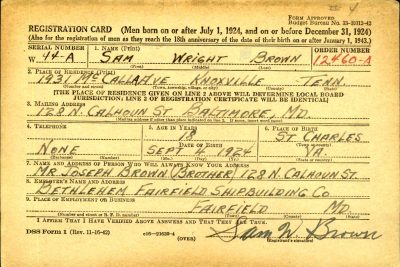 Form Approved
Budget Bureau No. 33-R013-42
REGISTRATION CARD (Men born on or after July 1, 1924, and on or before December 31, 1924)
(Also for the registration of men as they reach the 18th anniversary of the date of their birth on or after January 1, 1943.)
SERIAL NUMBER 1. NAME (Print) ORDER NUMBER
W 44-A SAM WRIGHT BROWN 12460-A
(First) (Middle) (Last)
2. PLACE OF RESIDENCE (Print)
1931 McCALLA AVE KNOXVILLE TENN.
(Number and street) (Town, township, village, or city) (County) (State)
[THE PLACE OF RESIDENCE GIVEN ON LINE 2 ABOVE WILL DETERMINE LOCAL BOARD
JURISDICTION; LINE 2 OF REGISTRATION CERTIFICATE WILL BE IDENTICAL]
3. MAILING ADDRESS
128 N. CALHOUN ST BALTIMORE, MD.
[Mailing address if other than place indicated on line 2. If same, insert word same]
4. TELEPHONE 5. AGE IN YEARS 6. PLACE OF BIRTH
18 ST CHARLES
DATE OF BIRTH (Town or county)
NONE SEPT 4 1924 VA.
(Exchange) (Number) (Mo.) (Day) (Yr.) (State or country)
7. NAME AND ADDRESS OF PERSON WHO WILL ALWAYS KNOW YOUR ADDRESS
MR JOSEPH BROWN (BROTHER) 128 N. CALHOUN ST.
8. EMPLOYER'S NAME AND ADDRESS
BETHLEREM FAIRFIELD SHIPBUILDING CO
9. PLACE OF EMPLOYMENT OR BUSINESS
FAIRFIELD MD.
(Number and street or R. F. D. number) (Town) (County) (State)
I AFFIRM THAT I HAVE VERIFIED ABOVE ANSWERS AND THAT THEY ARE TRUE.
DSS Form 1 (Rev. 11-16-42) (OVER) Sam W. Brown
(Registrant's signature)